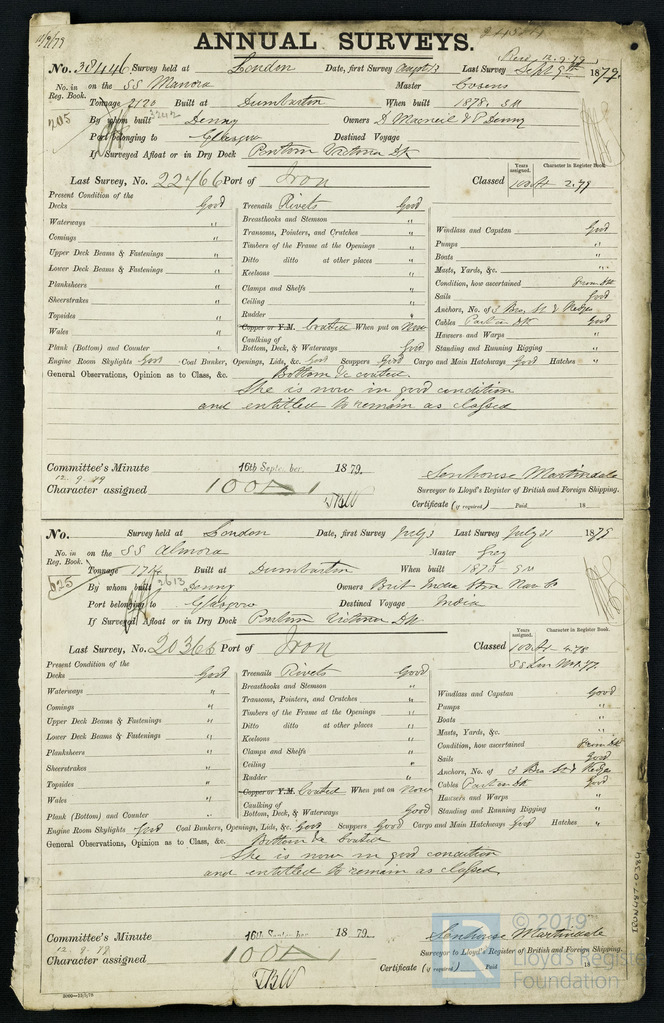 11/9/79
ANNUAL SURVEYS.
Recd 12.9.79
No. 38446 Survey held at London Date, first Survey August 13 Last Survey Sept 9th 1879.
No. in Reg. Book. on the SS Manora Master Cosens
205 Tonnage 2120 Built at Dumbarton When built 1878.
2242
By whom built Denny Owners D Macneil & P Denny
Port belonging to Glasgow Destined Voyage
If Surveyed Afloat or in Dry Dock Pontoon Victoria Dk
Last Survey, No. 22466 Port of Iron Classed
Years assigned. Character in Register Book.
100 A 2.79
Present Condition of the
Decks Good
Waterways "
Comings "
Upper Deck Beams & Fastenings "
Lower Deck Beams & Fastenings "
Planksheers "
Sheerstrakes "
Topsides "
Wales "
Plank (Bottom) and Counter "
Treenails Rivets Good
Breasthooks and Stemson "
Transoms, Pointers, and Crutches "
Timbers of the Frame at the Openings "
Ditto ditto at other places "
Keelsons "
Clamps and Shelfs "
Ceiling "
Rudder "
Copper or Y.M. Coated When put on Now
Caulking of
Bottom, Deck, & Waterways Good
Windlass and Capstan Good
Pumps "
Boats "
Masts, Yards, &c. "
Condition, how ascertained From Dk
Sails Good
Anchors, No. of 3 Bro St & Kedge
Cables Part in Dk Good
Hawsers and Warps "
Standing and Running Rigging "
Engine Room Skylights Good Coal Bunker, Openings, Lids, &c. Good Scuppers Good Cargo and Main Hatchways Good Hatches "
General Observations, Opinion as to Class, &c. Bottom &c coated
She is now in good condition
and entitled to remain as classed
Committee's Minute 16th September. 1879.
12.9.79
Character assigned 100A1
Senhouse Martindale
Surveyor to Lloyd's Register of British and Foreign Shipping.
Certificate (if required) Paid 18
No. Survey held at London Date, first Survey July 3 Last Survey July 31 1879
No. in Reg. Book. on the SS Almora Master Grey
525 Tonnage 1714 Built at Dumbarton When built
2613
By whom built Denny Owners Brit India Stm Nav Co
Port belonging to Glasgow Destined Voyage India
If Surveyed Afloat or in Dry Dock Pontoon Victoria Dk
Last Survey, No. 20366 Port of Iron Classed
Years assigned. Character in Register Book.
100 A 4.78
Present Condition of the
Decks Good
Waterways "
Comings "
Upper Deck Beams & Fastenings "
Lower Deck Beams & Fastenings "
Planksheers "
Sheerstrakes "
Topsides "
Wales "
Plank (Bottom) and Counter "
Treenails Rivets Good
Breasthooks and Stemson "
Transoms, Pointers, and Crutches "
Timbers of the Frame at the Openings "
Ditto ditto at other places "
Keelsons "
Clamps and Shelfs "
Ceiling "
Rudder "
Copper or Y.M. Coated When put on Now
Caulking of
Bottom, Deck, & Waterways Good
Windlass and Capstan Good
Pumps "
Boats "
Masts, Yards, &c. "
Condition, how ascertained From Dk
Sails Good
Anchors, No. of 3 Bro St & Kedge
Cables Part in Dk Good
Hawsers and Warps "
Standing and Running Rigging "
Engine Room Skylights Good Coal Bunkers, Openings, Lids, &c. Good Scuppers Good Cargo and Main Hatchways Good Hatches "
General Observations, Opinion as to Class, &c. Bottom &c Coated
She is now in good condition
and entitled to remain as classed
Committee's Minute 16th September 1879.
12.9.79
Character assigned 100A1
Senhouse Martindale
Surveyor to Lloyd's Register of British and Foreign Shipping.
Certificate (if required) Paid 18
IRON487-0384
© 2019
LR Lloyd's Register
Foundation